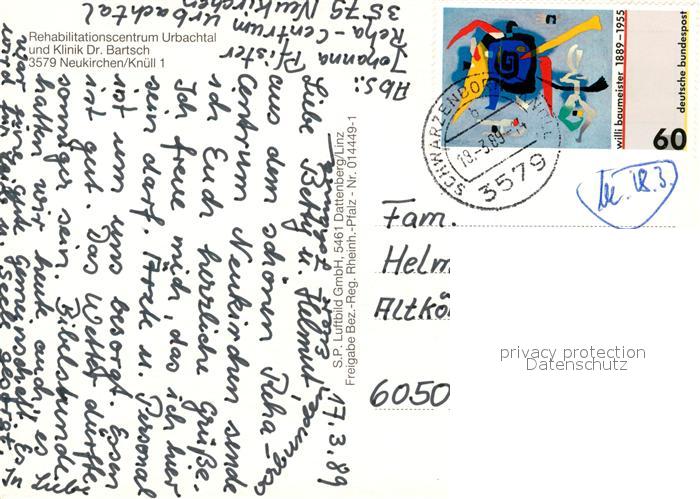 Rehabilitationscentrum Urbachtal
und Klinik Dr. Bartsch
3579 Neukirchen/Knüll 1
Abs.: Johanna Pfister
Reha-Centrum Urbachtal
3579 Neukirchen
17.3.89
Liebe Betty u. Helmut,
aus dem schönen Reha-
Centrum Neukirchen sende
ich Euch herzliche Grüße.
Ich freue mich, das ich hier
sein darf. Ärzte u. Personal
ist um uns besorgt. Essen
ist gut. Das Wetter dürfte
sonniger sein. Bibelstunde
hatten wir heute auch, es
war eine gute Gemeinschaft. Es
wird für Leib u. Seele gesorgt.
In Liebe
S.P. Luftbild GmbH, 5461 Dattenberg/Linz
Freigabe Bez.-Reg. Rheinh.-Pfalz - Nr. 014449-1
willi baumeister 1889-1955
deutsche bundespost
60
SCHWARZENBORN, KNÜLL
b
18.-3.89
3579
18.3.
Fam.
Helm
Altkö
6050
privacy protection
Datenschutz